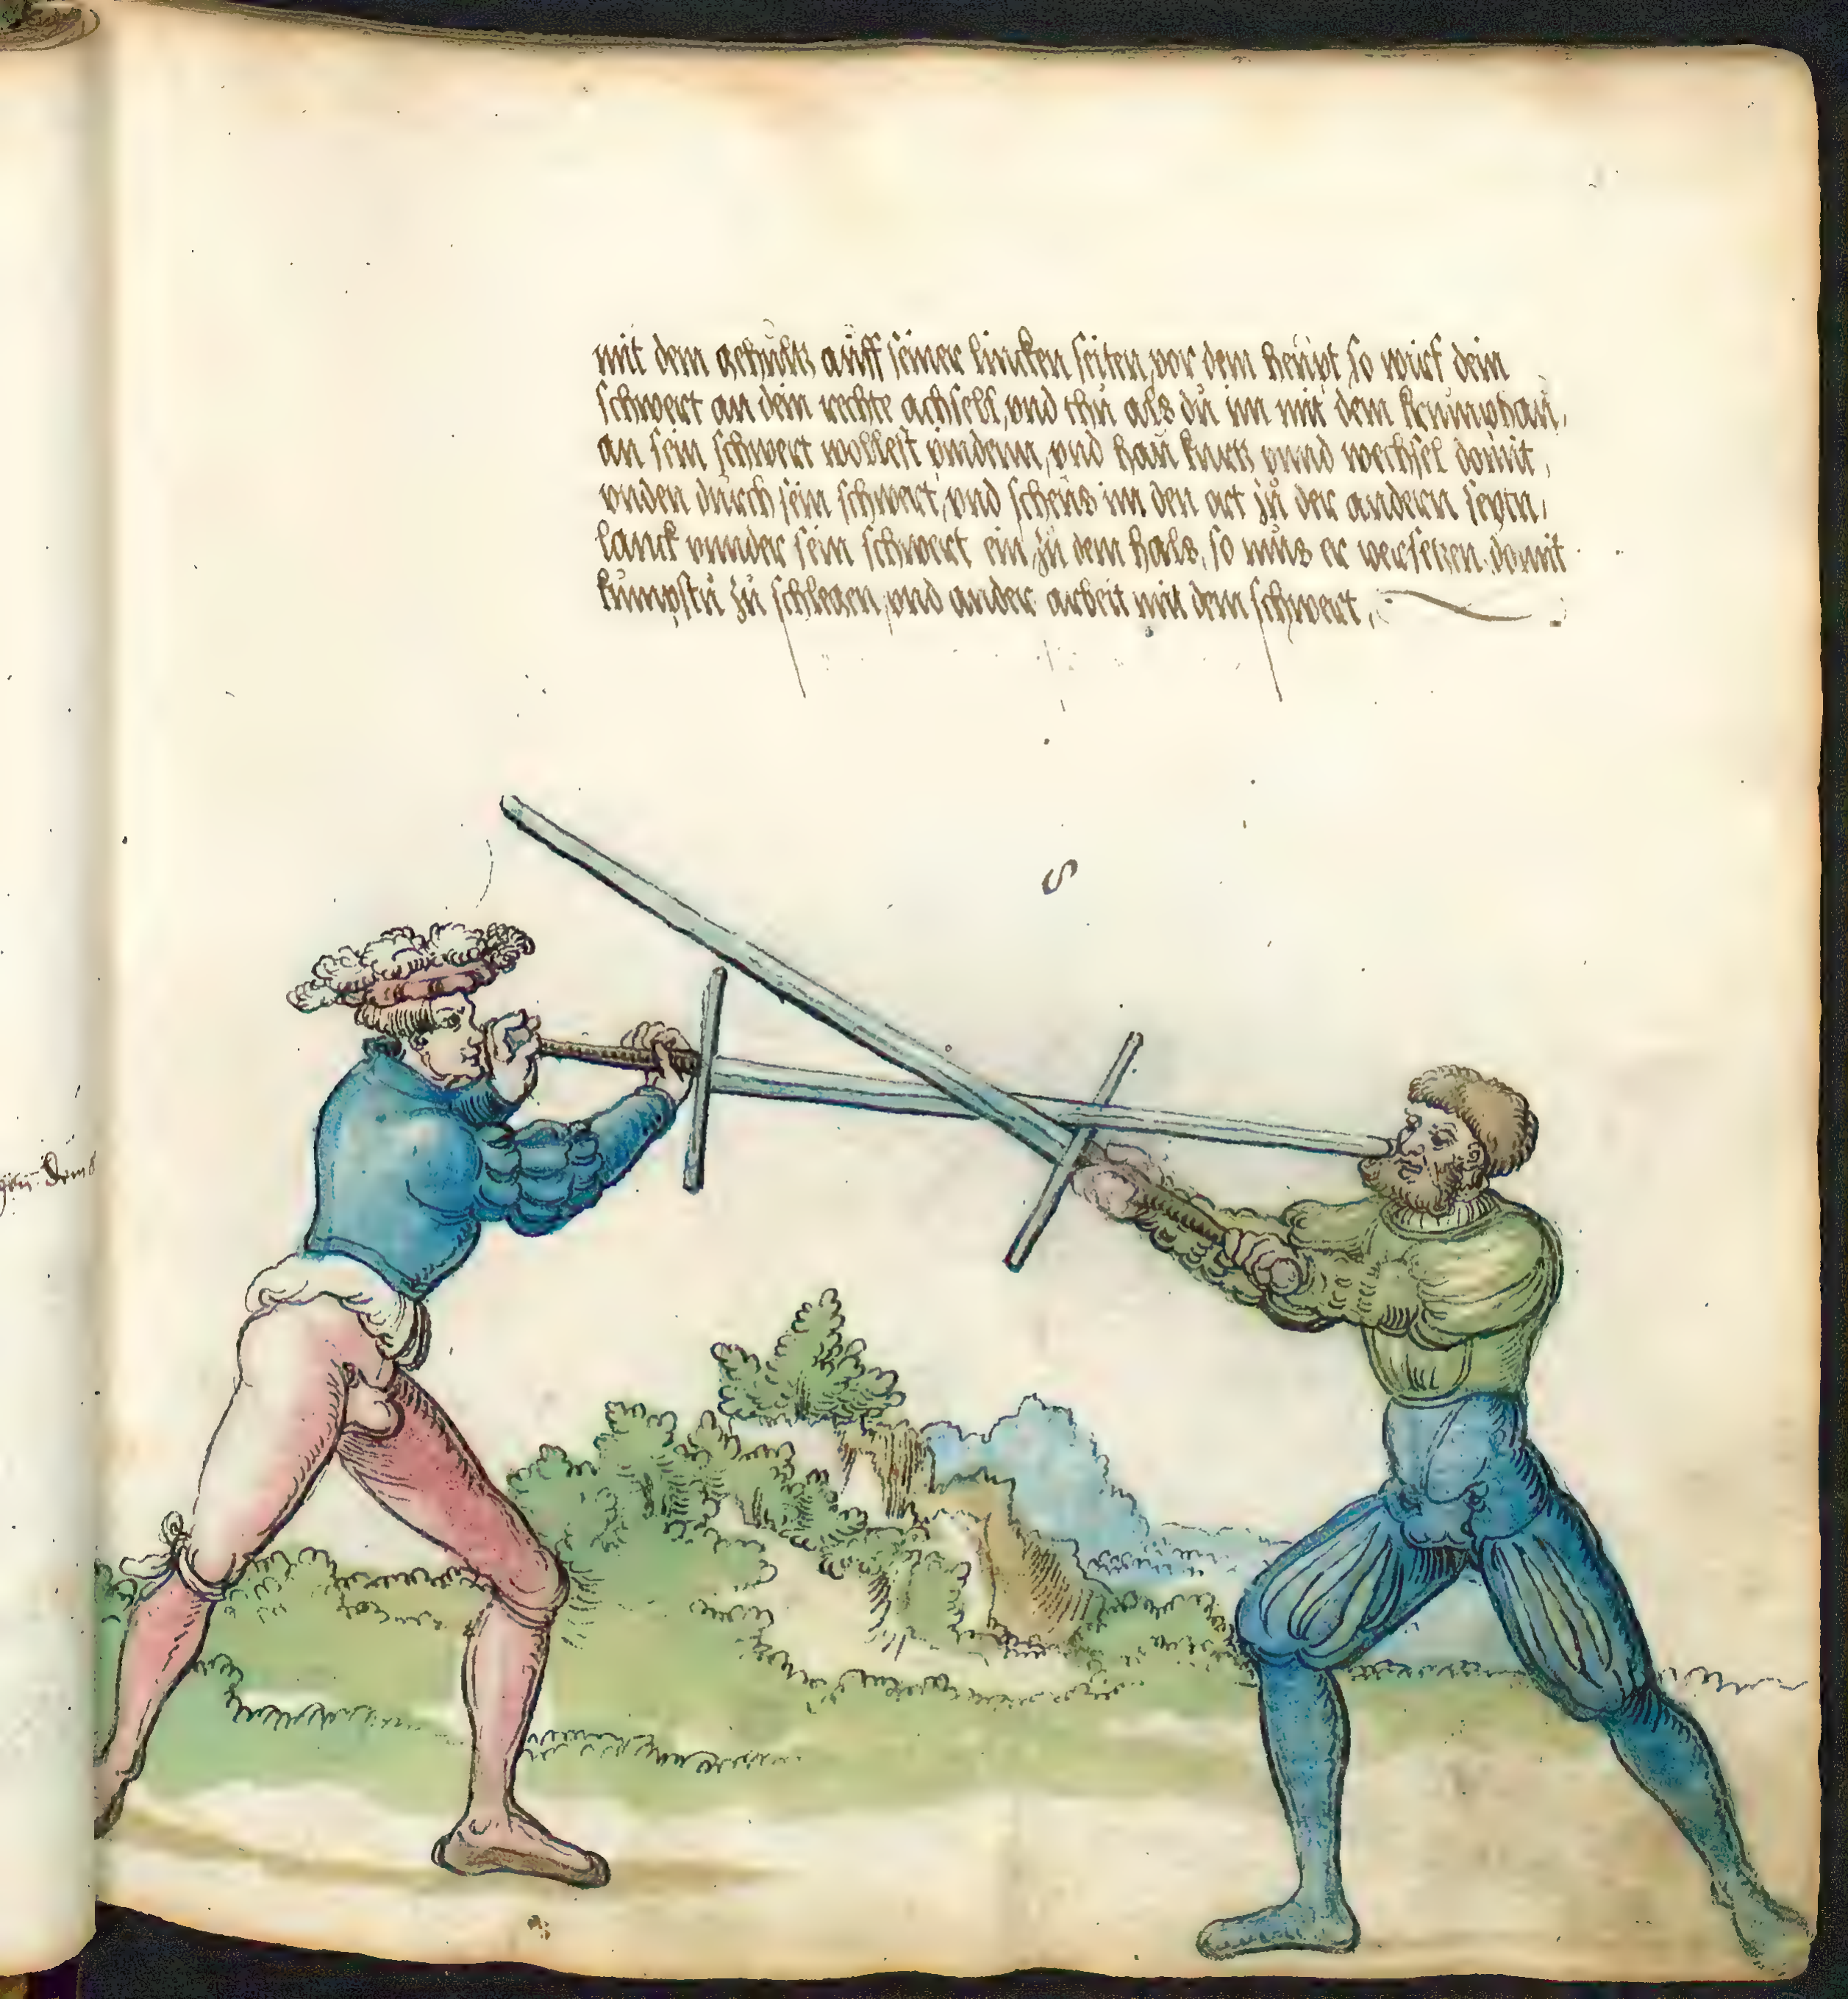 mit dem gehultz auff seiner lincken seiten, vor dem heupt so wirf dein
schwert an dein rechte achsell, vnd thu als du im mit dem krumphau,
an sein schwert wollest binden, vnd hau kurtz vnnd wechsel domit,
vnden durch sein schwert, vnd scheus im den ort zu der andern seytn,
lanck vnnder sein schwert ein zu dem hals, so mus er versetzen, domit
kumpstu zu schlegen, vnd ander arbeit mit dem schwert,